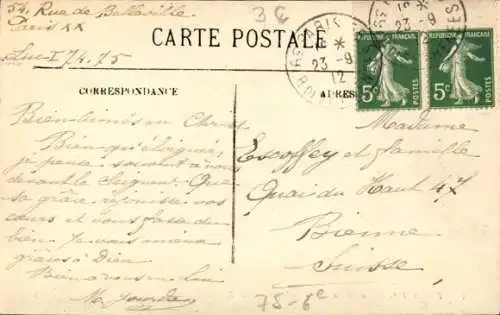 54, Rue de Belleville
Paris XX
Luc I 74.75
3C
CARTE POSTALE
PARIS
23 - 9
12
23 - 9
RÉPUBLIQUE FRANÇAISE
5c
POSTES
RÉPUBLIQUE FRANÇAISE
5c
POSTES
CORRESPONDANCE
ADRESSE
Bien-aimés en Christ
Bien qu'éloignés,
je pense souvent à vous
devant le Seigneur. Que
sa grâce réjouisse vos
cœurs et vous fasse du
bien. Je vais mieux
grâces à Dieu
Bien à vous en Lui
M. Jourdan
Madame
Escoffey et famille
Quai du Haut 47
Bienne
Suisse
75-6e